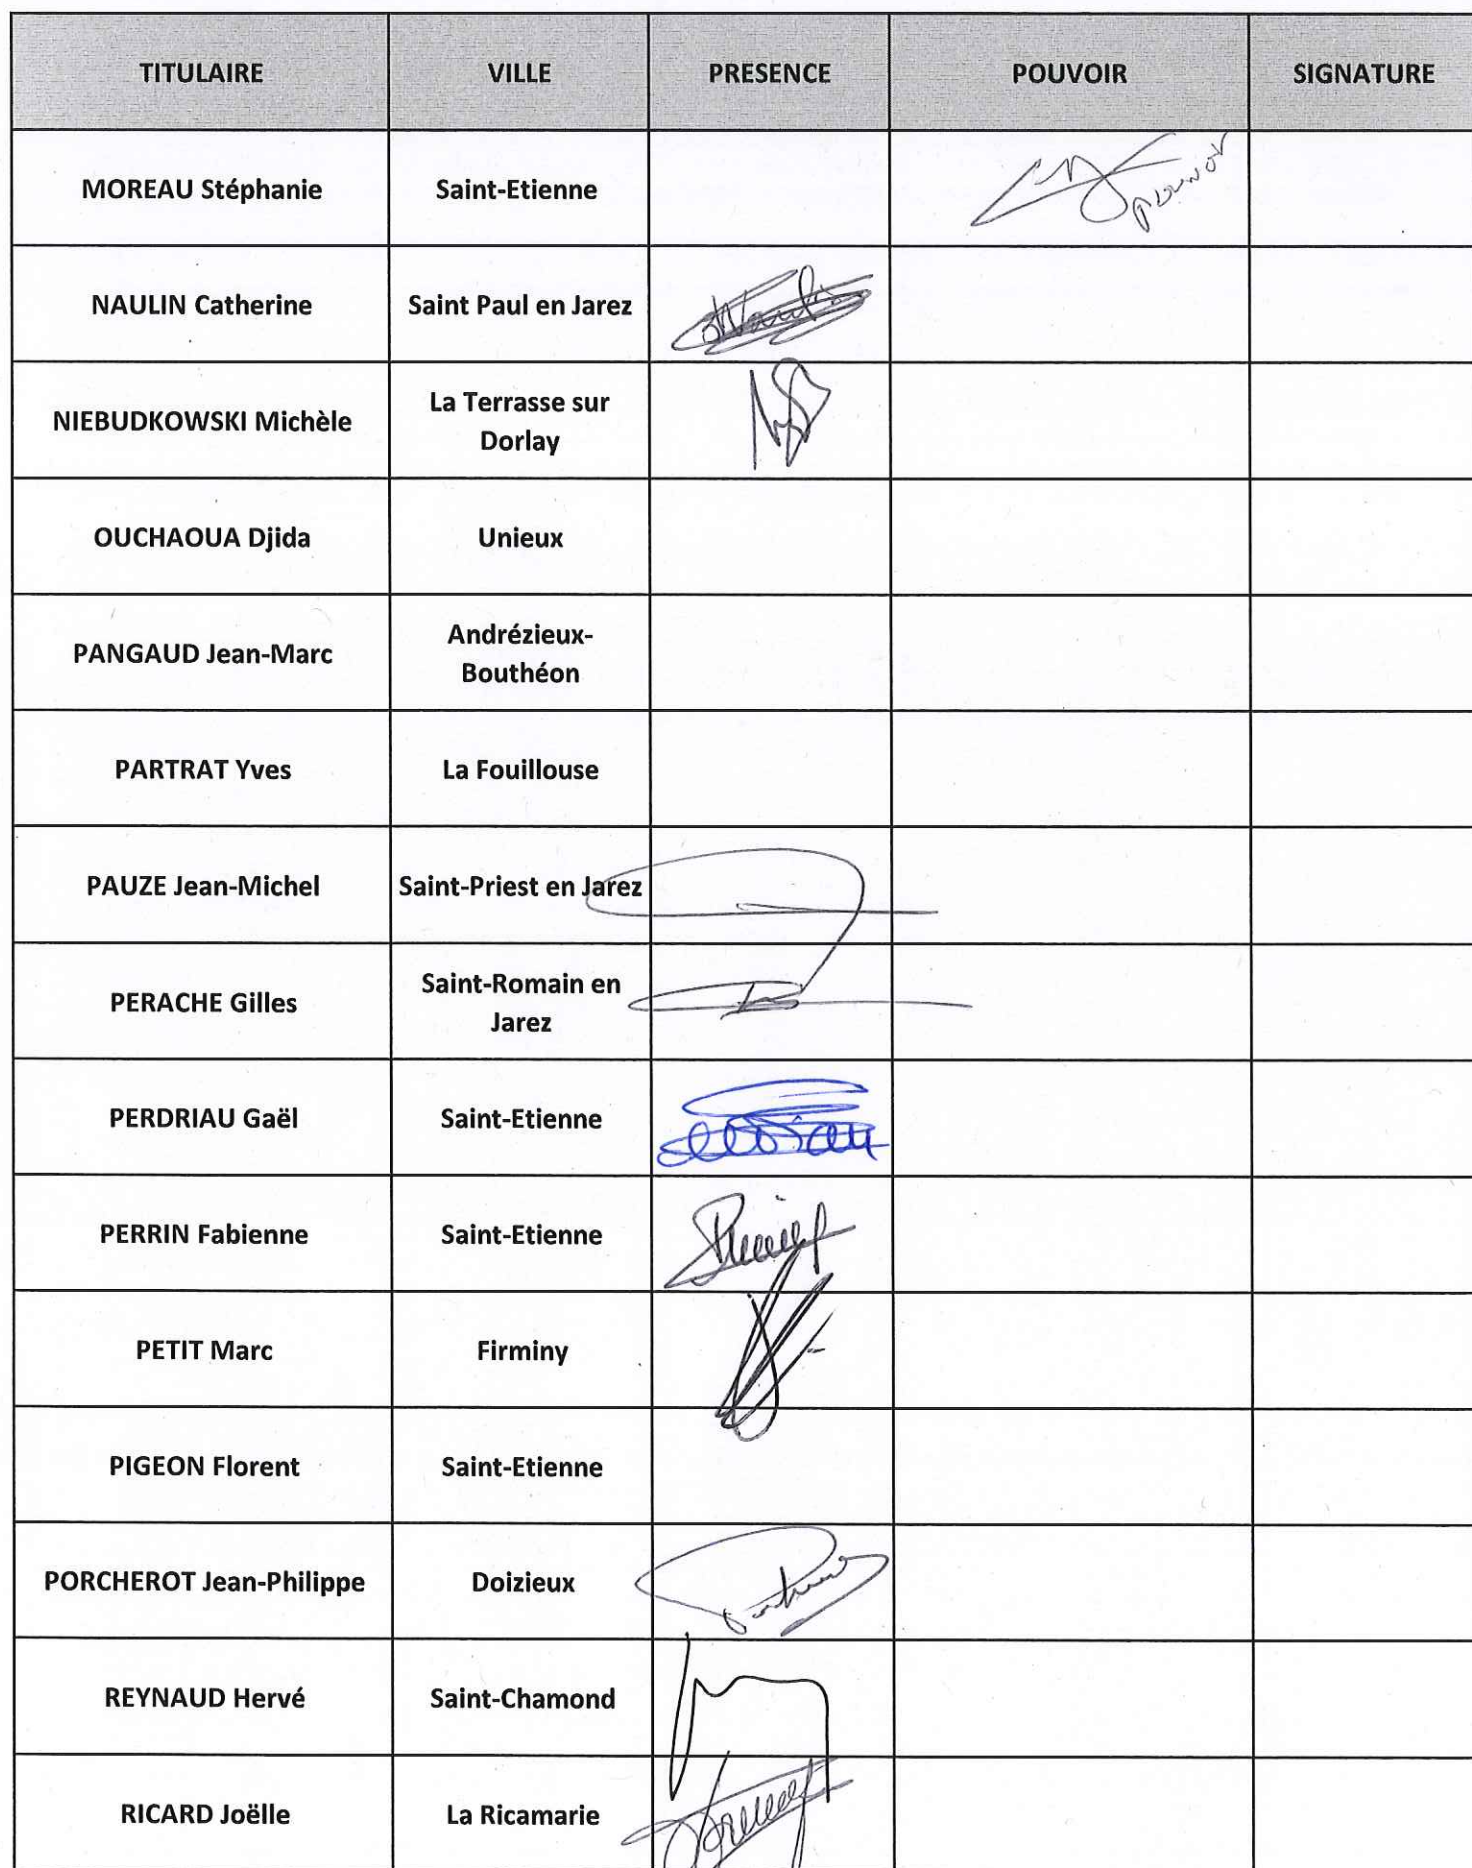 TITULAIRE VILLE PRESENCE POUVOIR SIGNATURE
MOREAU Stéphanie Saint-Etienne pouvoir
NAULIN Catherine Saint Paul en Jarez
NIEBUDKOWSKI Michèle La Terrasse sur
Dorlay
OUCHAOUA Djida Unieux
PANGAUD Jean-Marc Andrézieux-
Bouthéon
PARTRAT Yves La Fouillouse
PAUZE Jean-Michel Saint-Priest en Jarez
PERACHE Gilles Saint-Romain en
Jarez
PERDRIAU Gaël Saint-Etienne
PERRIN Fabienne Saint-Etienne
PETIT Marc Firminy
PIGEON Florent Saint-Etienne
PORCHEROT Jean-Philippe Doizieux
REYNAUD Hervé Saint-Chamond
RICARD Joëlle La Ricamarie